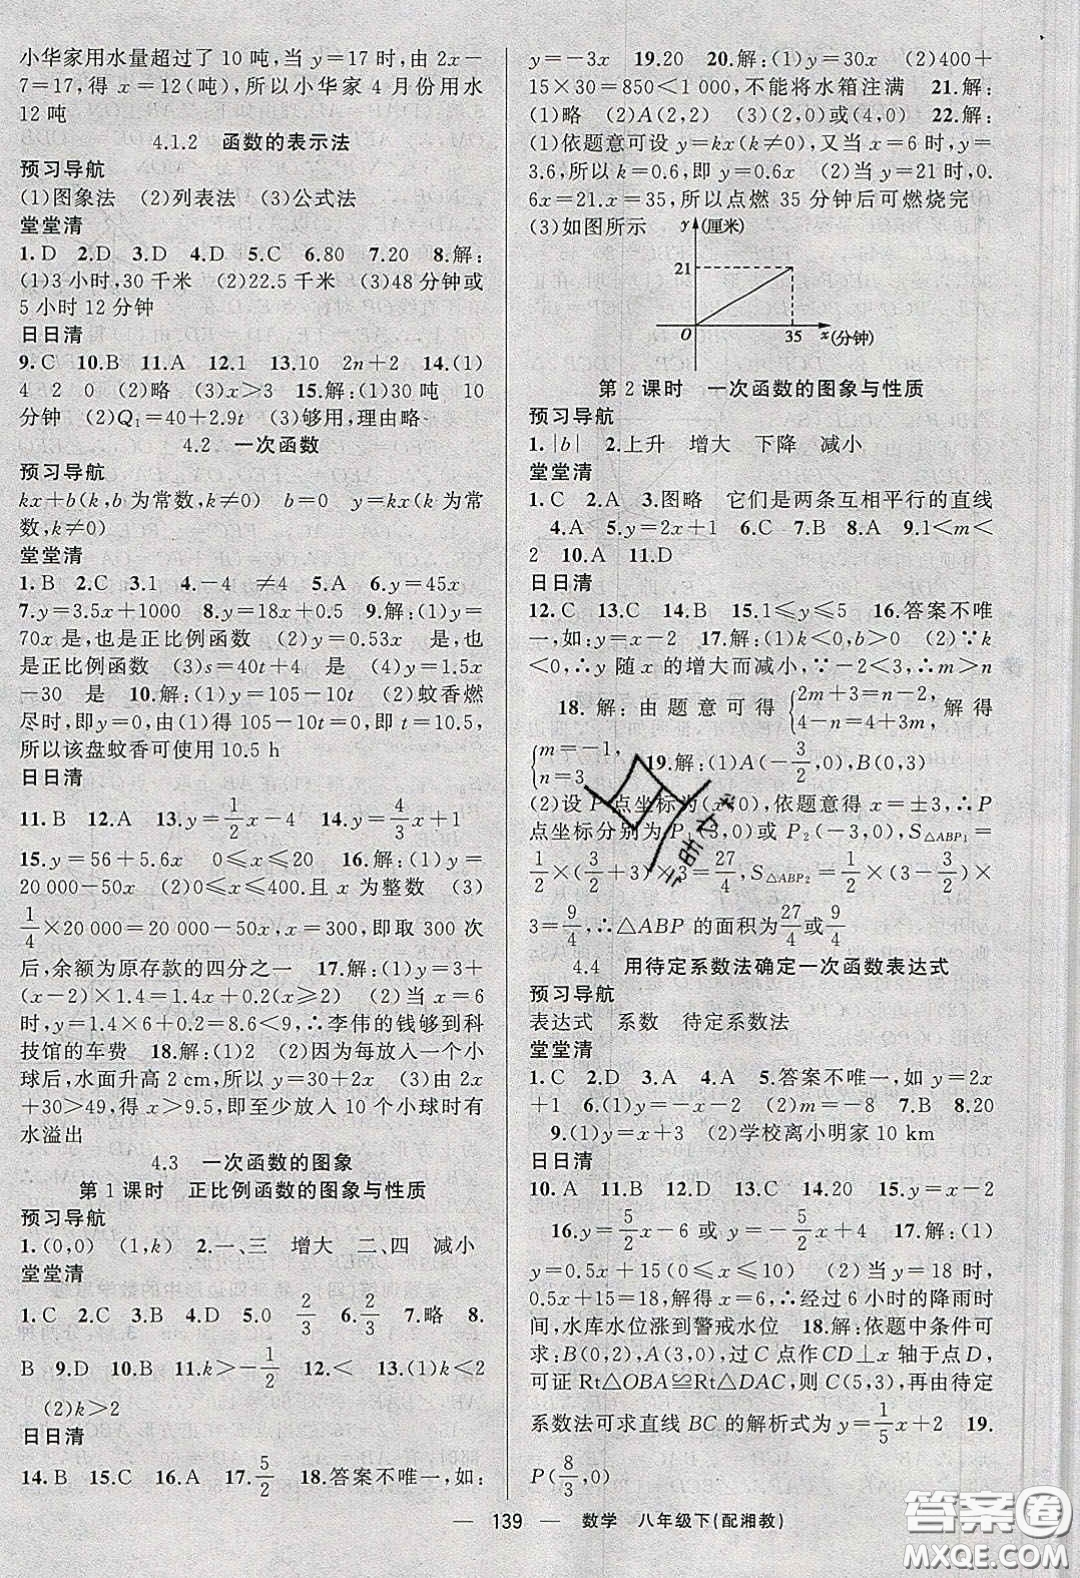 小华家用水量超过了 10 吨，当 y=17 时，由 2x-
7=17，得 x=12(吨)，所以小华家 4 月份用水
12 吨
4.1.2 函数的表示法
预习导航
(1)图象法 (2)列表法 (3)公式法
堂堂清
1.D 2.D 3.D 4.D 5.C 6.80 7.20 8.解：
(1)3 小时，30 千米 (2)22.5 千米 (3)48 分钟或
5 小时 12 分钟
日日清
9.C 10.B 11.A 12.1 13.10 2n+2 14.(1)
4 2 0 (2)略 (3)x>3 15.解：(1)30 吨 10
分钟 (2)Q₁=40+2.9t (3)够用，理由略
4.2 一次函数
预习导航
kx+b(k，b 为常数，k≠0) b=0 y=kx(k 为常
数，k≠0)
堂堂清
1.B 2.C 3.1 4.-4 ≠4 5.A 6.y=45x
7.y=3.5x+1000 8.y=18x+0.5 9.解：(1)y=
70x 是，也是正比例函数 (2)y=0.53x 是，也
是正比例函数 (3)s=40t+4 是 (4)y=1.5x
-30 是 10.解：(1)y=105-10t (2)蚊香燃
尽时，即 y=0，由(1)得 105-10t=0，即 t=10.5，
所以该盘蚊香可使用 10.5 h
日日清
11.B 12.A 13.y=1/2x-4 14.y=4/3x+1
15.y=56+5.6x 0≤x≤20 16.解：(1)y=
20 000-50x (2)0≤x≤400，且 x 为整数 (3)
1/4×20 000=20 000-50x，x=300，即取 300 次
后，余额为原存款的四分之一 17.解：(1)y=3+
(x-2)×1.4=1.4x+0.2(x≥2) (2)当 x=6
时，y=1.4×6+0.2=8.6<9，∴李伟的钱够到科
技馆的车费 18.解：(1)2 (2)因为每放入一个小
球后，水面升高 2 cm，所以 y=30+2x (3)由 2x
+30>49，得 x>9.5，即至少放入 10 个小球时有
水溢出
4.3 一次函数的图象
第 1 课时 正比例函数的图象与性质
预习导航
1.(0,0) (1,k) 2.一、三 增大 二、四 减小
堂堂清
1.D 2.C 3.B 4.D 5.0 2/3 6.2/3 7.略 8.
B 9.D 10.D 11.k>-1/2 12.< 13.(1)k<2
(2)k>2
日日清
14.B 15.C 16.A 17.5/2 18.答案不唯一，如：
y=-3x 19.20 20.解：(1)y=30x (2)400+
15×30=850<1000，不能将水箱注满 21.解：
(1)略 (2)A(2,2) (3)(2,0)或(4,0) 22.解：
(1)依题意可设 y=kx(k≠0)，又当 x=6 时，y=
3.6，所以 k=0.6，即 y=0.6x (2)当 y=21 时，0.
6x=21.x=35，所以点燃 35 分钟后可燃烧完
(3)如图所示
y(厘米)
21
O 35 x(分钟)
第 2 课时 一次函数的图象与性质
预习导航
1.|b| 2.上升 增大 下降 减小
堂堂清
1.C 2.A 3.图略 它们是两条互相平行的直线
4.A 5.y=2x+1 6.C 7.B 8.A 9.1<m<
2 10.A 11.D
日日清
12.C 13.C 14.B 15.1≤y≤5 16.答案不唯
一，如：y=x-2 17.解：(1)k<0，b>0 (2)∵k
<0，∴y 随 x 的增大而减小，∵-2<4，∴m>n
18.解：由题意可得{2m+3=n-2， 4-n=4+3m， 解得
{m=-1， n=3 19.解：(1)A(-3/2,0)，B(0,3)
(2)设 P 点坐标为(x,0)，依题意得 x=±3，∴P
点坐标分别为 P₁(3,0)或 P₂(-3,0)，S△ABP₁=
1/2×(3/2+3)×3=27/4，S△ABP₂=1/2×(3-3/2)×
3=9/4，∴△ABP 的面积为27/4或9/4
4.4 用待定系数法确定一次函数表达式
预习导航
表达式 系数 待定系数法
堂堂清
1.C 2.D 3.B 4.A 5.答案不唯一，如：y=2x
+1 6.(1)y=2x-4 (2)m=-8 7.B 8.20
9.(1)y=x+3 (2)学校离小明家 10 km
日日清
10.A 11.B 12.B 13.C 14.20 15.y=x-2
16.y=5/2x-6 或 y=-5/2x+4 17.解：(1)
y=0.5x+15(0≤x≤8) (2)当 y=18 时，
0.5x+15=18，解得 x=6，∴经过 6 小时的降雨时
间，水库水位涨到警戒水位 18.解：依题中条件可
求：B(0,2)，A(3,0)，过 C 点作 CD⊥x 轴于点 D，
可证 Rt△OBA≌Rt△DAC，则 C(5,3)，再由待定
系数法可求直线 BC 的解析式为 y=1/5x+2 19.
P(8/3,0)
— 139 — 数学 八年级下(配湘教)
答案圈
MXQE.COM